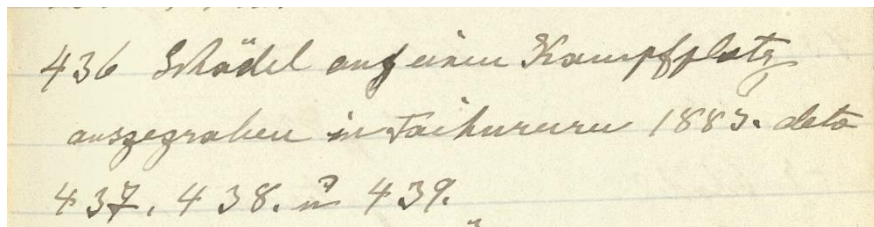 436 Schädel auf einen Kampfplatz
ausgegraben in Taihururu 1883. deto
437, 438. u 439.